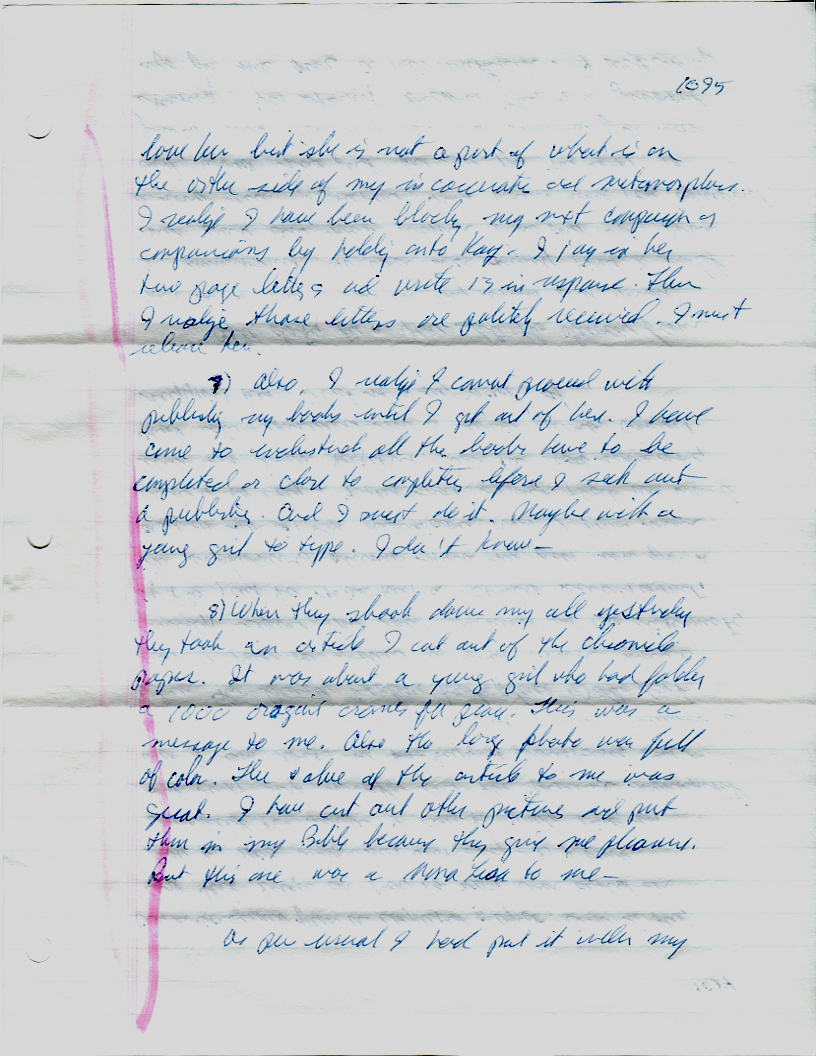 1095
love her but she is not a part of what is on
the other side of my incarceration and metamorphosis.
I realize I have been blocking my next companion or
companions by holding onto Kay. I in her
two page letters and write 15 in response. Then
I realize those letters are politely received. I must
release her.
7) Also, I realize I cannot proceed with
publishing my books until I get out of here. I have
come to understand all the books have to be
completed or close to completion before I seek out
a publisher. And I must do it. Maybe with a
young girl to type. I don't know—
8) When they shook down my cell yesterday
they took an article I cut out of the Chronicle
papers. It was about a young girl who had folded
a 1000 origami cranes for peace. This was a
message to me. Also the large photo was full
of color. The value of the article to me was
great. I have cut out other pictures and put
them in my Bible because they give me pleasure.
But this one was a Mona Lisa to me—
As per usual I had put it under my